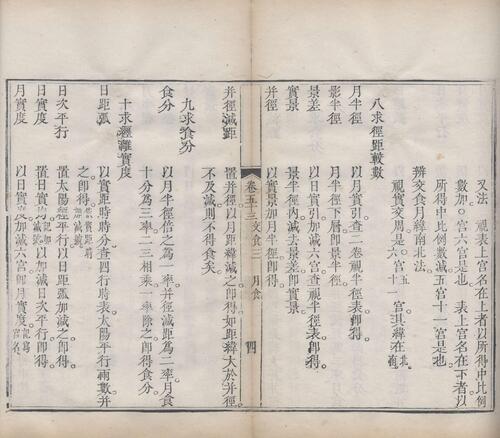 又法　視表上宮名在上者以所得中比例
數加○宮六宮是也　表上宮名在下者以
所得中比例數減五宮十一宮是也
辨交食月緯南北法
視實交周是○宮六宮五宮十一宮其緯在北南
八求徑距較數
月半徑　以月實引查二卷視半徑表卽得
影半徑　月半徑下層卽景半徑
景差　以日實引加減六宮查視半徑表卽得
實景　景半徑內減去景差卽實景
并徑　以實景加月半徑卽得
卷五十三　交食三　月食　四
并徑減距　置并徑以月距緯減之卽得如距緯大於并徑
不及減則不得食矣
九求食分
食分　以月半徑倍之為一率并徑減距為二率月食
十分為三率二三相乘一率除之卽得食分
十求經離實度
日距弧　以實距時時分查四行時表太陽平行兩數并
之卽得
日次平行　置太陽經平行以日距弧加減之卽得
日實度　置日實均以加減日次平行卽得
月實度　以日實度加減六宮卽月實度